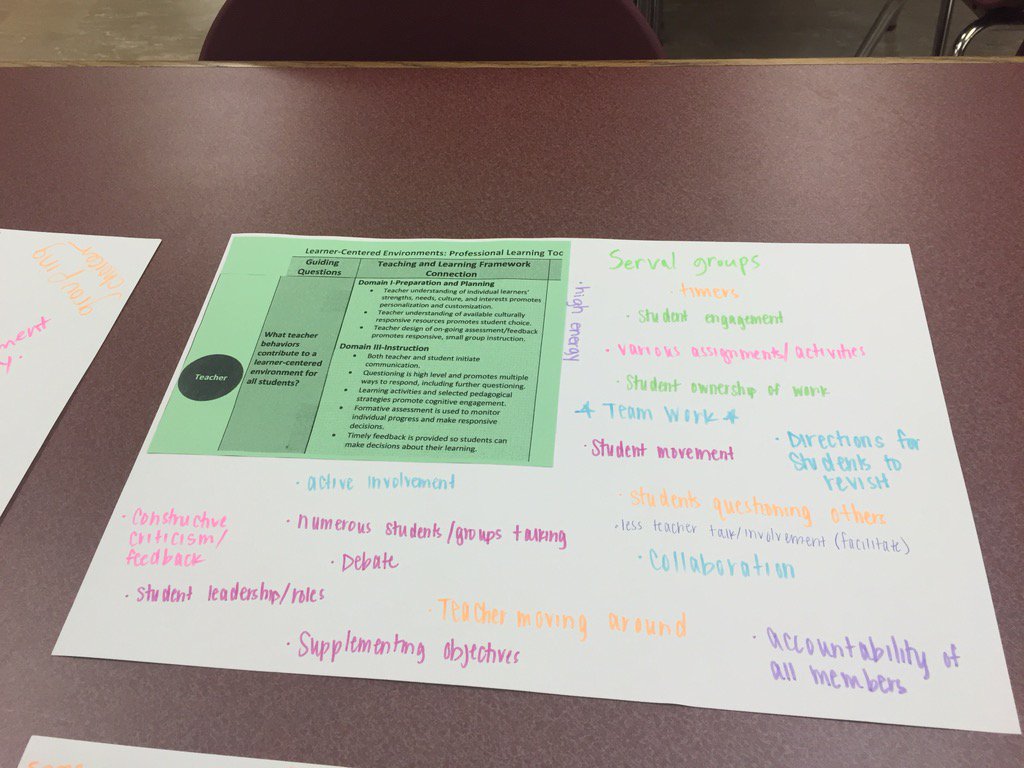 Learner-Centered Environments: Professional Learning Too
Guiding
Questions
Teaching and Learning Framework
Connection
Teacher
What teacher
behaviors
contribute to a
learner-centered
environment for
all students?
Domain I-Preparation and Planning
• Teacher understanding of individual learners'
strengths, needs, culture, and interests promotes
personalization and customization.
• Teacher understanding of available culturally
responsive resources promotes student choice.
• Teacher design of on-going assessment/feedback
promotes responsive, small group instruction.
Domain III-Instruction
• Both teacher and student initiate
communication.
• Questioning is high level and promotes multiple
ways to respond, including further questioning.
• Learning activities and selected pedagogical
strategies promote cognitive engagement.
• Formative assessment is used to monitor
individual progress and make responsive
decisions.
• Timely feedback is provided so students can
make decisions about their learning.
· high energy
Serval groups
· timers
· student engagement
· various assignments/activities
· Student ownership of work
* Team Work *
· Student movement
· Directions for
Students to
revisit
· Students questioning others
· less teacher talk/involvement (facilitate)
· Collaboration
· active involvement
· Constructive
criticism/
feedback
· numerous students/groups talking
· Debate
· Student leadership/roles
· Teacher moving around
· Supplementing objectives
· accountability of
all members